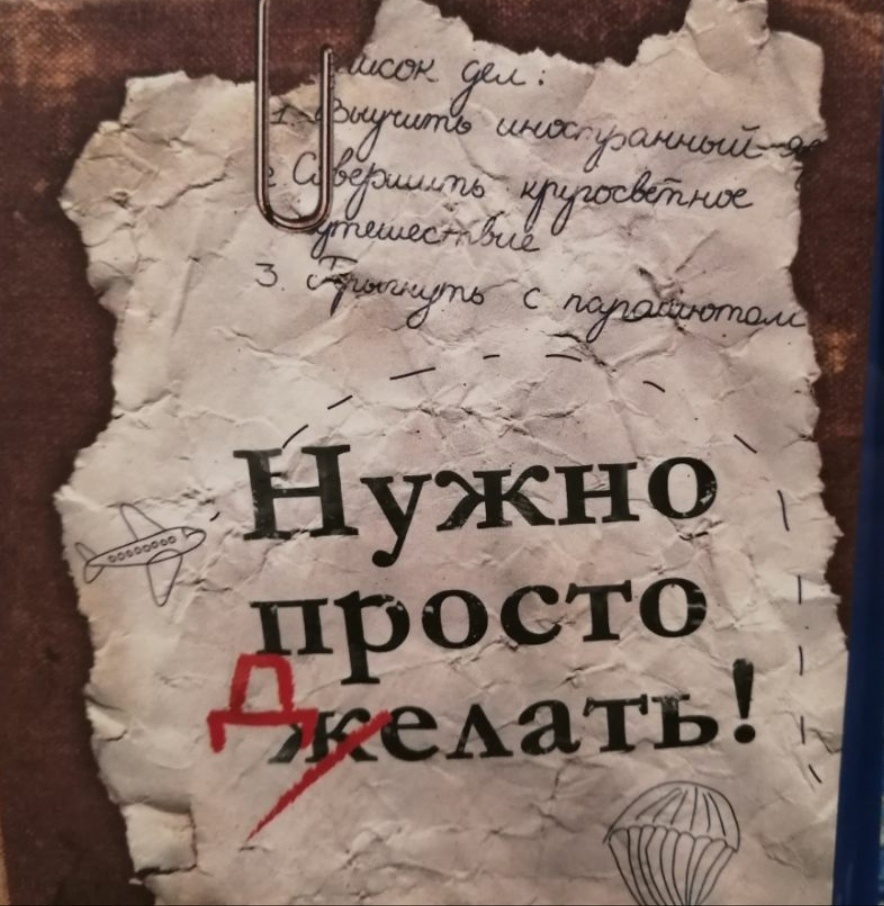 исок дел:
1. Выучить иностранный
Совершить кругосветное
утешествие
3. Прыгнуть с парашютом
Нужно
просто
Д
желать!